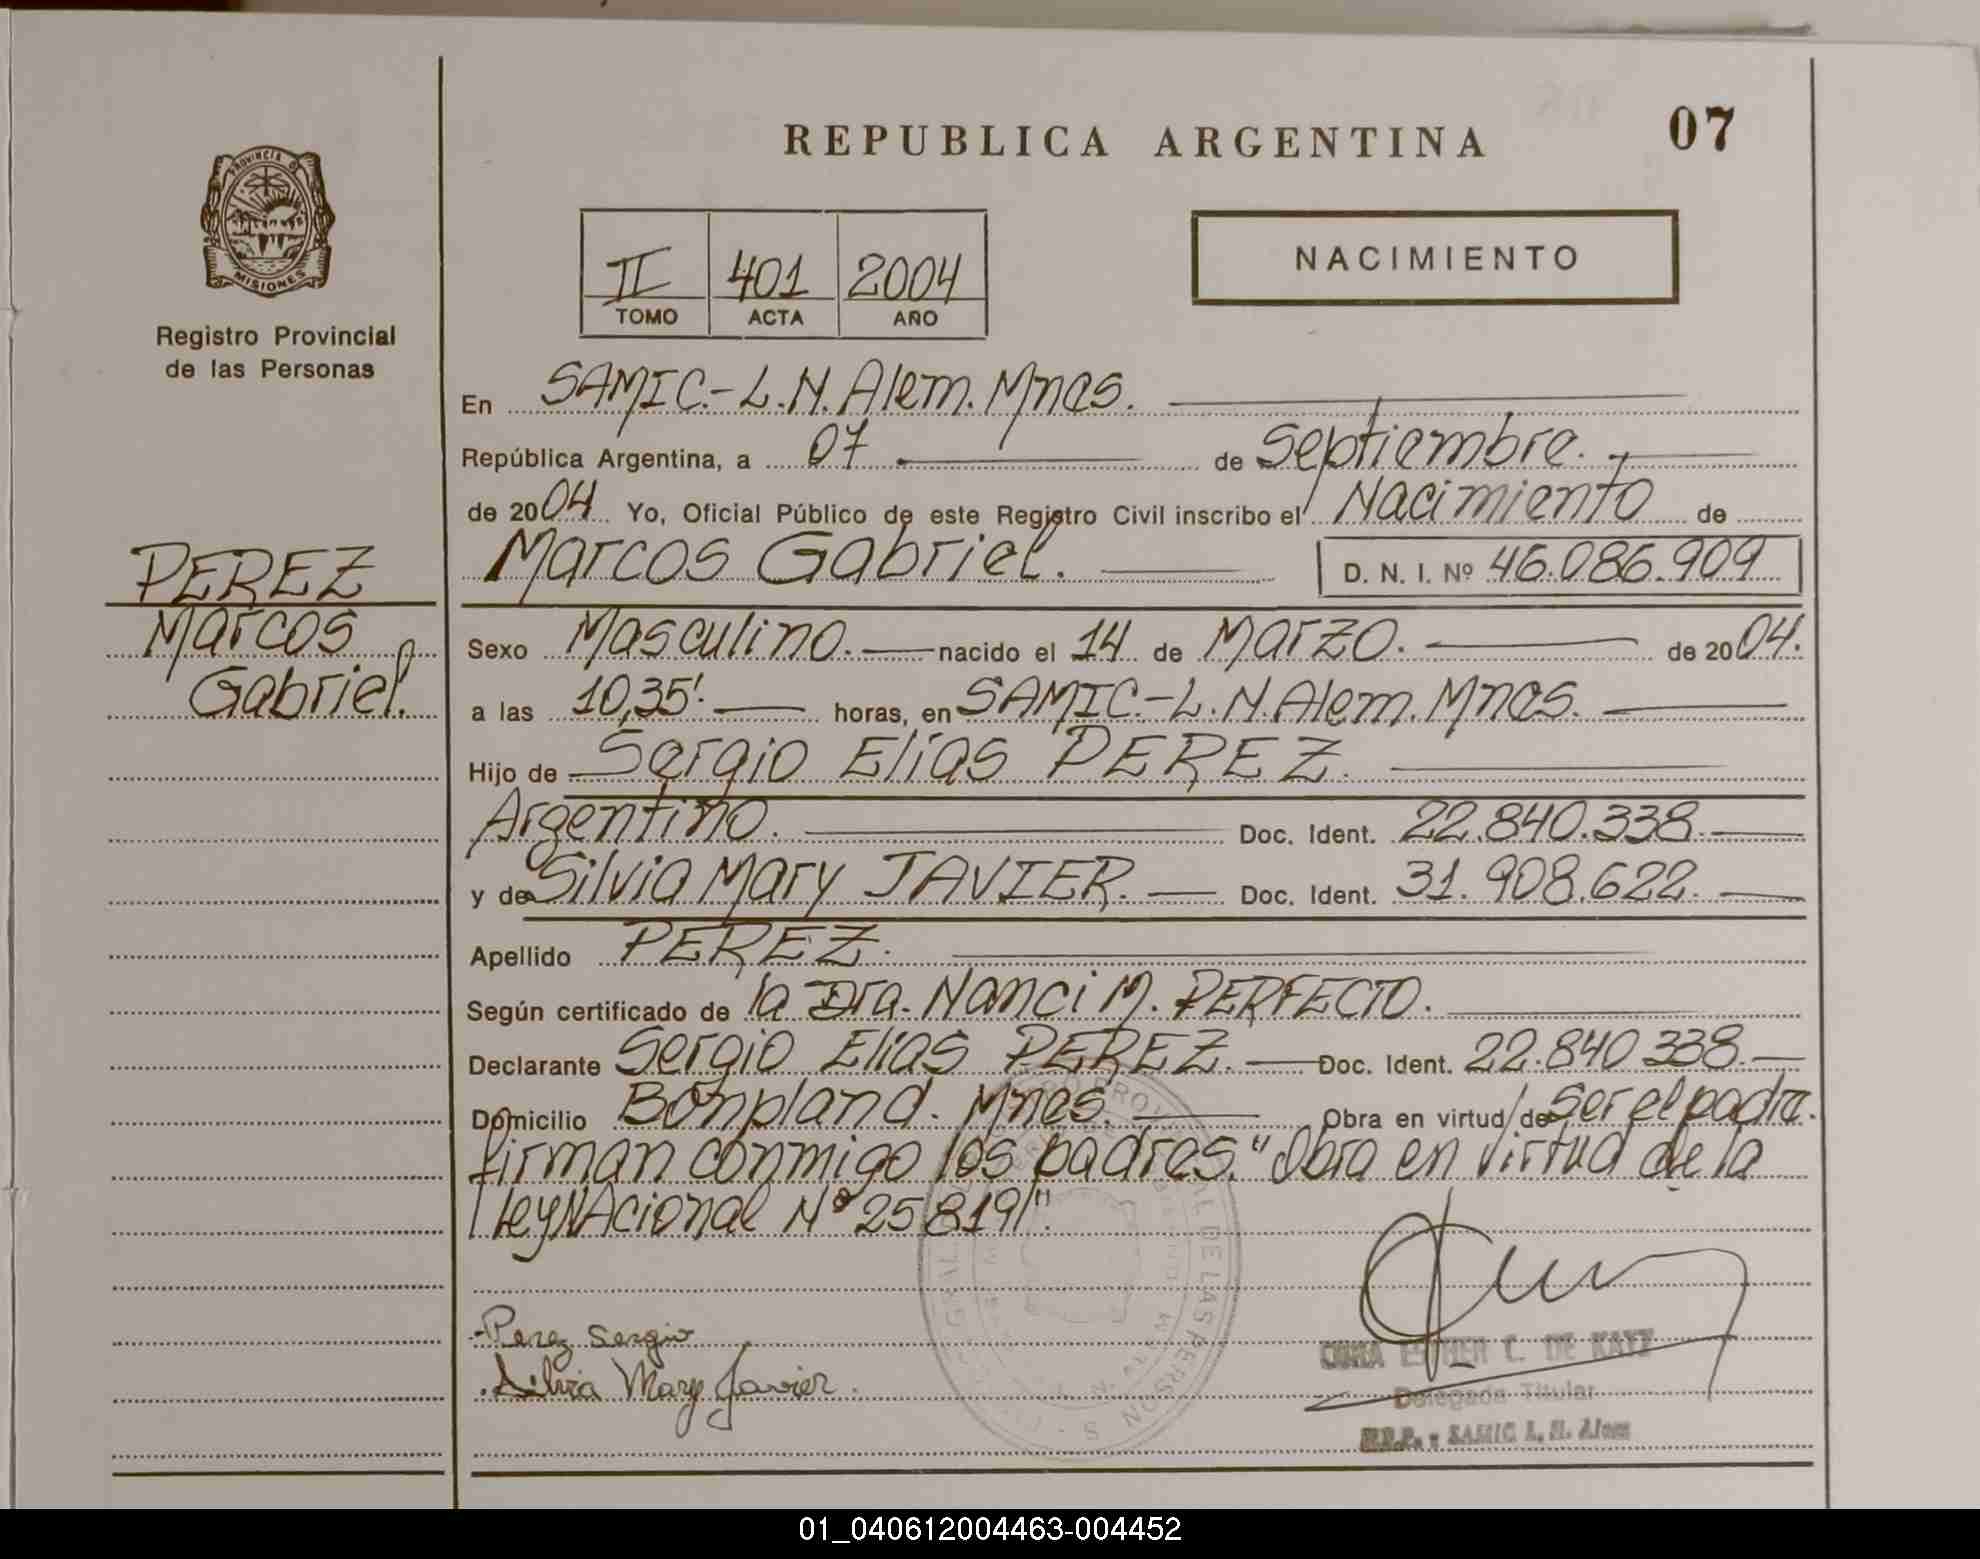 REPUBLICA ARGENTINA
07
PROVINCIA DE
MISIONES
Registro Provincial
de las Personas
II 401 2004
TOMO ACTA AÑO
NACIMIENTO
En SAMIC.-L.N.Alem.Mnes.
República Argentina, a 07 de Septiembre.
de 2004 Yo, Oficial Público de este Registro Civil inscribo el Nacimiento de
Marcos Gabriel. D. N. I. Nº 46.086.909
PEREZ
Marcos
Gabriel.
Sexo Masculino. nacido el 14 de Marzo. de 2004.
a las 10,35'. horas, en SAMIC.-L.N.Alem.Mnes.
Hijo de Sergio Elías PEREZ.
Argentino. Doc. Ident. 22.840.338.
y de Silvia Mary JAVIER. Doc. Ident. 31.908.622.
Apellido PEREZ.
Según certificado de la Dra. Nanci M. PERFECTO.
Declarante Sergio Elías PEREZ. Doc. Ident. 22.840 338.
Domicilio Bonpland. Mnes. Obra en virtud de Ser el padre.
firman conmigo los padres. "Obra en virtud de la
LeyNAcional Nº 25819/".
Perez Sergio
Silvia Mary Javier.
ESTHER C. DE
Delegada Titular
R.P.P. - SAMIC L. N. Alem
01_040612004463-004452